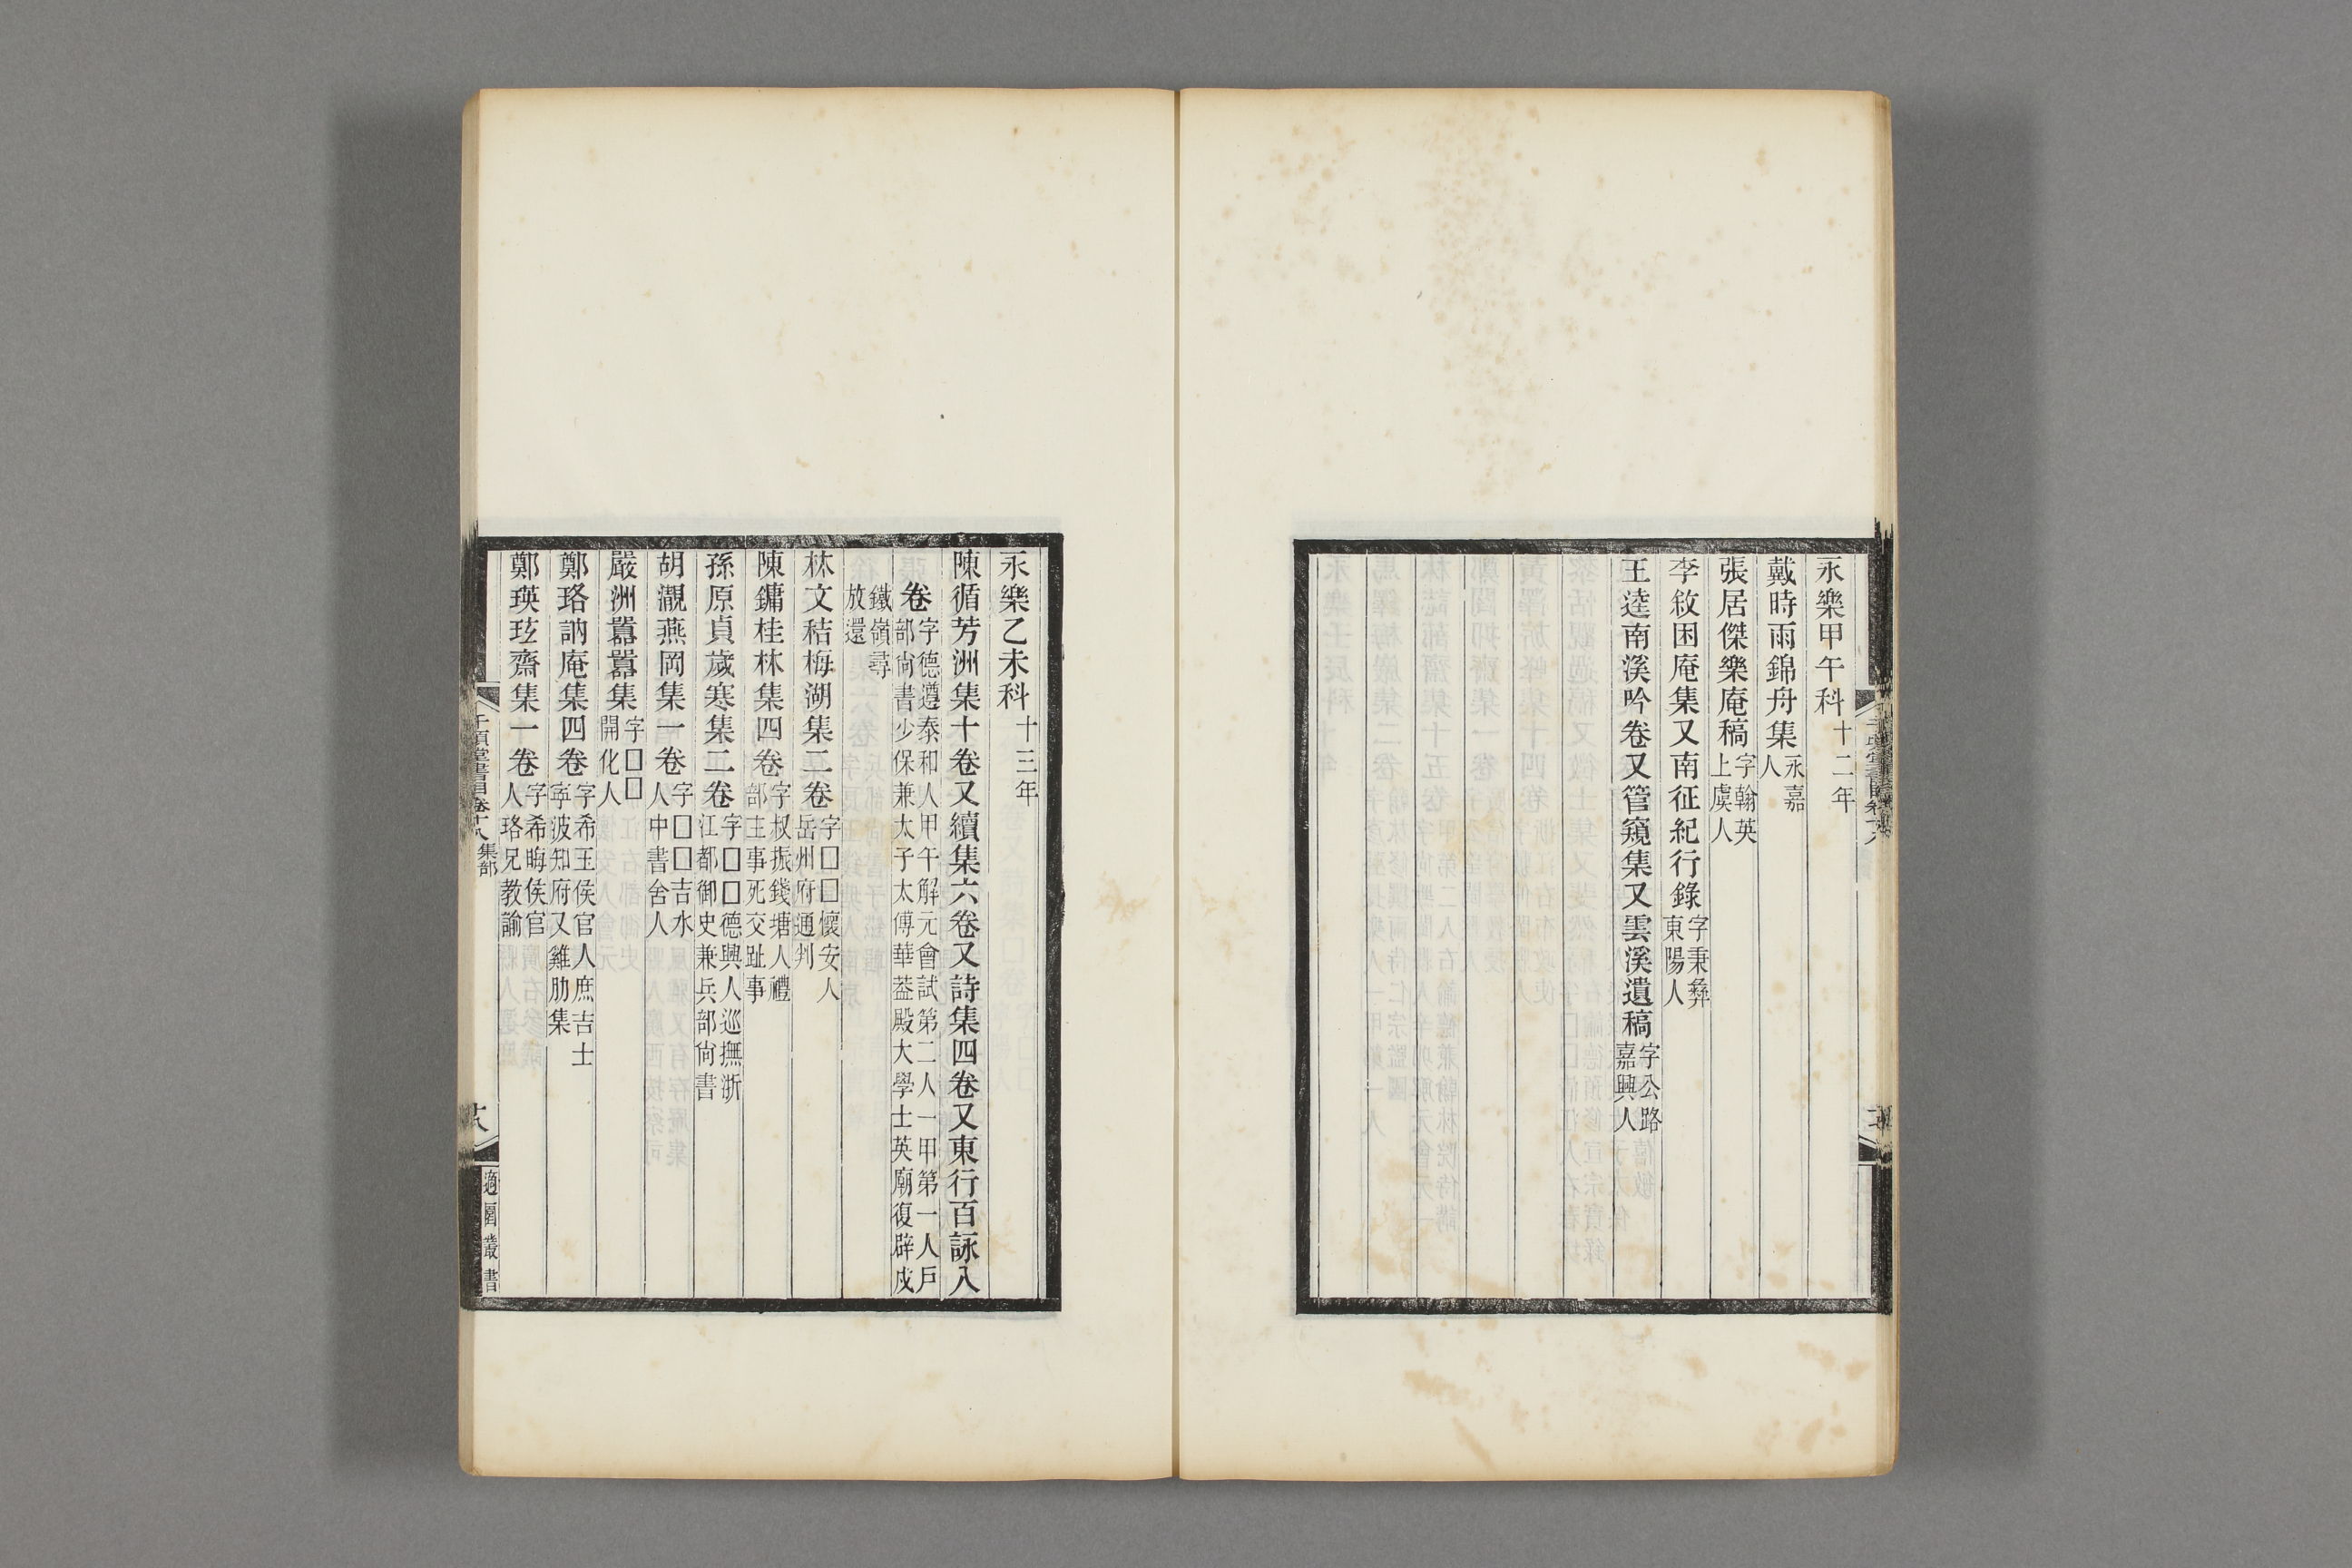 永樂甲午科十二年
戴時雨錦舟集永嘉人
張居傑樂庵稿字翰英上虞人
李敘困庵集又南征紀行錄字秉彝東陽人
王逵南溪吟卷又管窺集又雲溪遺稿字公路嘉興人
永樂乙未科十三年
陳循芳洲集十卷又續集六卷又詩集四卷又東行百詠八
卷字德遵泰和人甲午解元會試第二人一甲第一人戶部尚書少保兼太子太傅華葢殿大學士英廟復辟戍
鐵嶺尋放還
林文秸梅湖集二卷字□□懷安人岳州府通判
陳鏞桂林集四卷字叔振錢塘人禮部主事死交趾事
孫原貞歲寒集二卷字□□德興人巡撫浙江都御史兼兵部尚書
胡瀙燕岡集一卷字□□吉水人中書舍人
嚴洲嚚嚚集字□□開化人
鄭珞訥庵集四卷字希玉侯官人庶吉士寧波知府又雞肋集
鄭瑛玹齋集一卷字希晦侯官人珞兄教諭
千頃堂書目卷十八 集部
十八
適園叢書